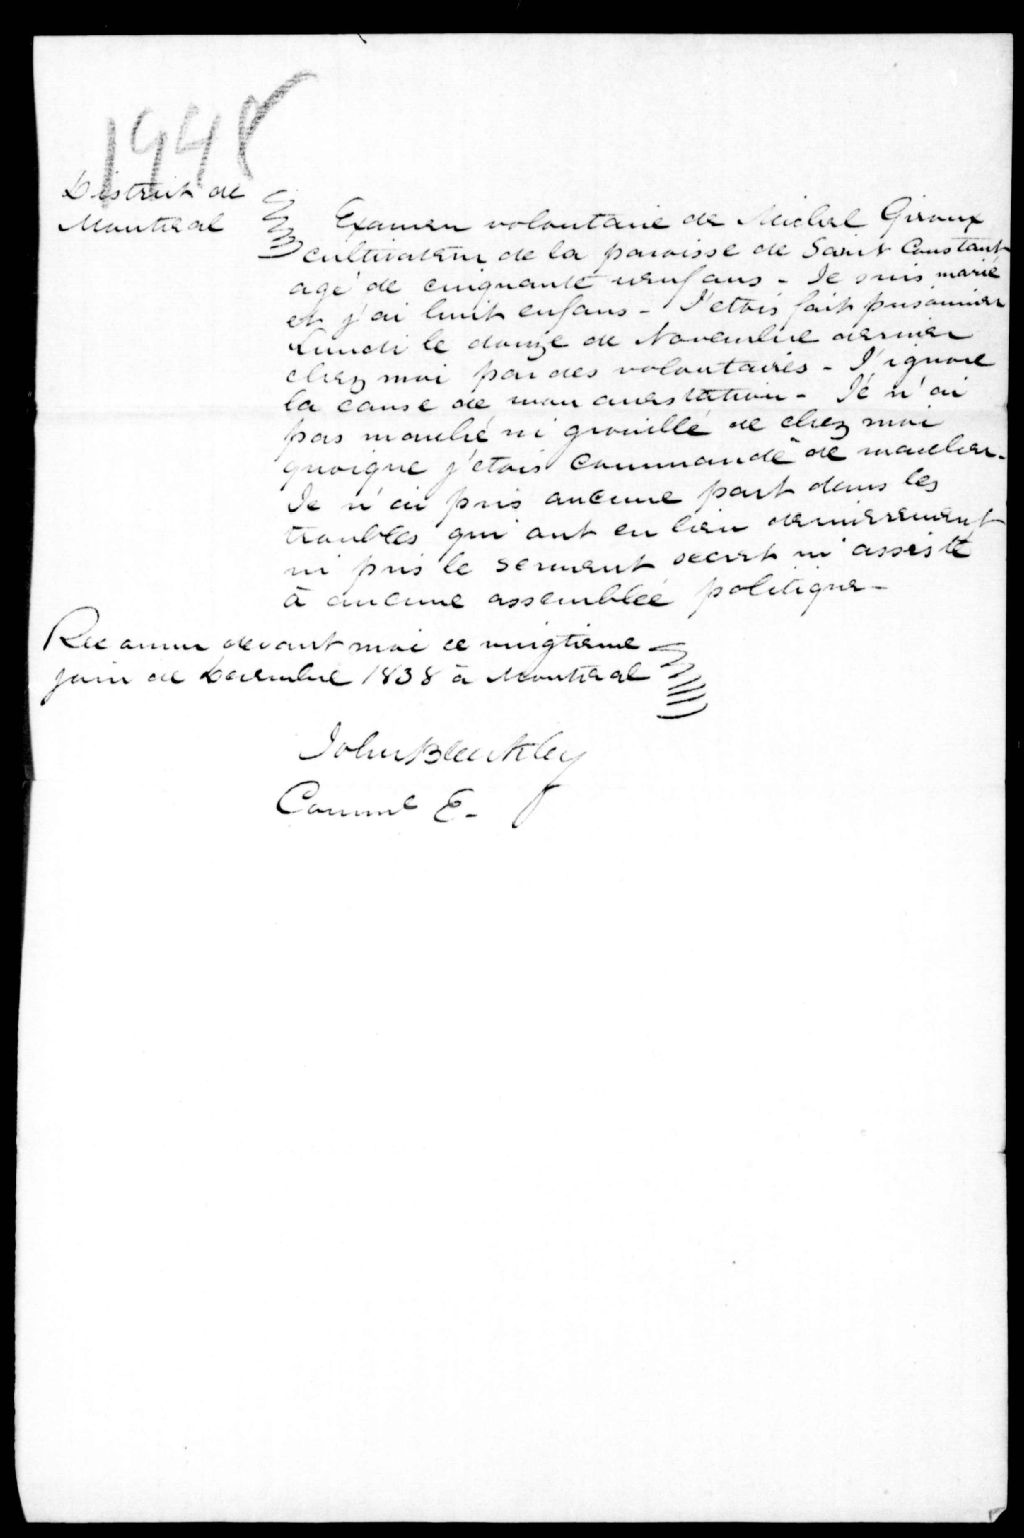 1948
District de
Montreal
Examen volontaire de Michel Giroux
cultivateur de la paroisse de Saint Constant
agé de cinquante neuf ans - Je suis marié
et j'ai huit enfans - J'etois fait prisonnier
Lundi le douze de Novembre dernier
chez moi par des volontaires - J'ignore
la cause de mon arrestation - Je n'ai
pas marché ni grouillé de chez moi
quoique j'etois commandé de marcher -
Je n'ai pris aucune part dans les
troubles qui ont eu lieu dernierement
ni pris le serment secret ni assisté
à aucune assemblée politique -
Reconnu devant moi ce vingtieme
jour de Decembre 1838 à Montreal
John Bleakley
Comm^e E -